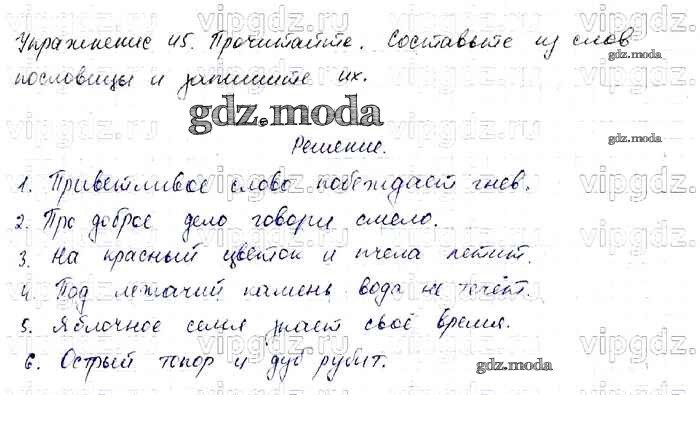 Упражнение 45. Прочитайте. Составьте из слов
пословицы и запишите их.
gdz.moda
Решение.
1. Приветливое слово побеждает гнев.
2. Про доброе дело говори смело.
3. На красный цветок и пчела летит.
4. Под лежачий камень вода не течёт.
5. Яблочное семя знает своё время.
6. Острый топор и дуб рубит.